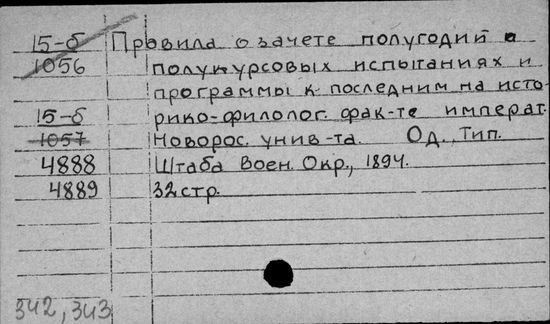 15-б Правила о зачете полугодий о
1056 полукурсовых испытаниях и
программы к последним на исто-
15-б рико-филолог. фак-те императ.
1057 Новорос. унив-та. Од., Тип.
4888 Штаба Воен. Окр., 1894.
4889 32 стр.
342, 343